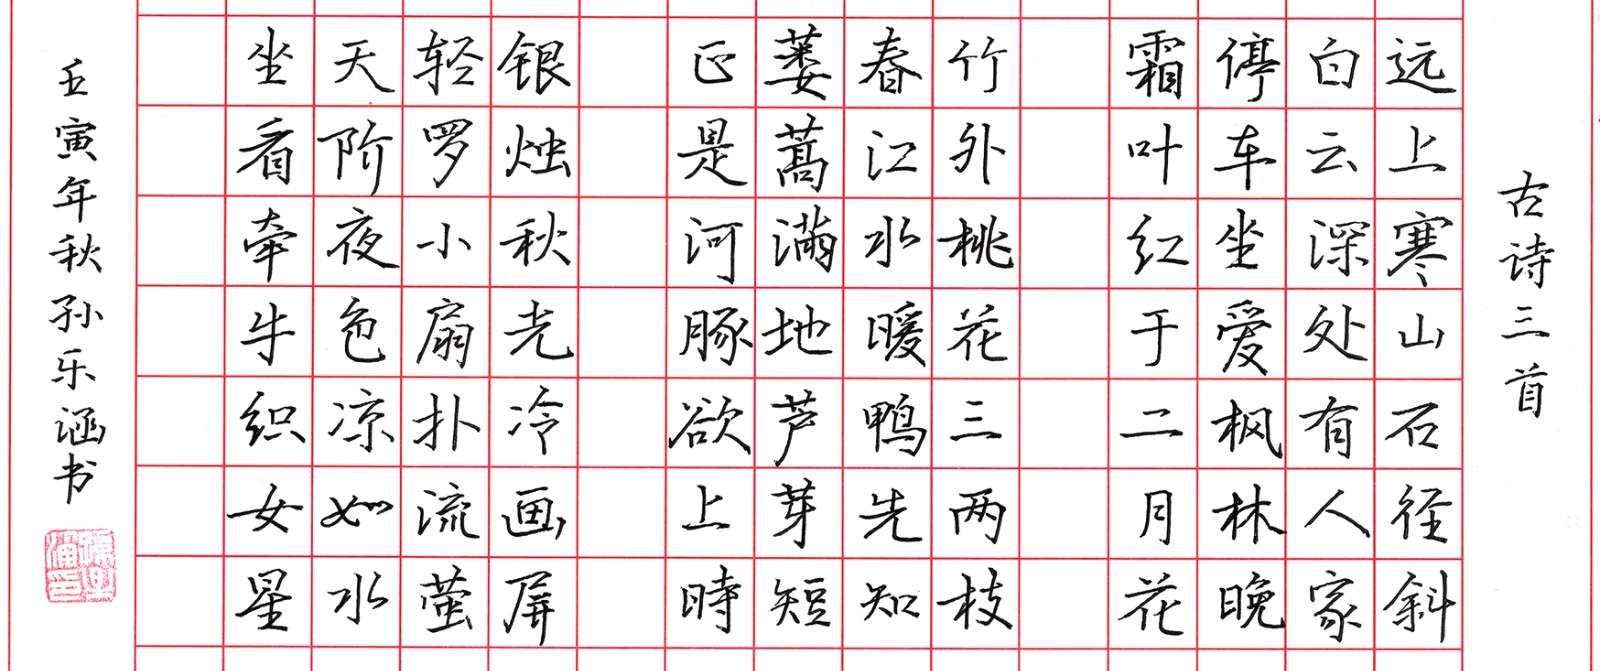 古诗三首
远上寒山石径斜
白云深处有人家
停车坐爱枫林晚
霜叶红于二月花
竹外桃花三两枝
春江水暖鸭先知
蒌蒿满地芦芽短
正是河豚欲上時
银烛秋光冷画屏
轻罗小扇扑流萤
天阶夜色凉如水
坐看牵牛织女星
壬寅年秋孙乐涵书